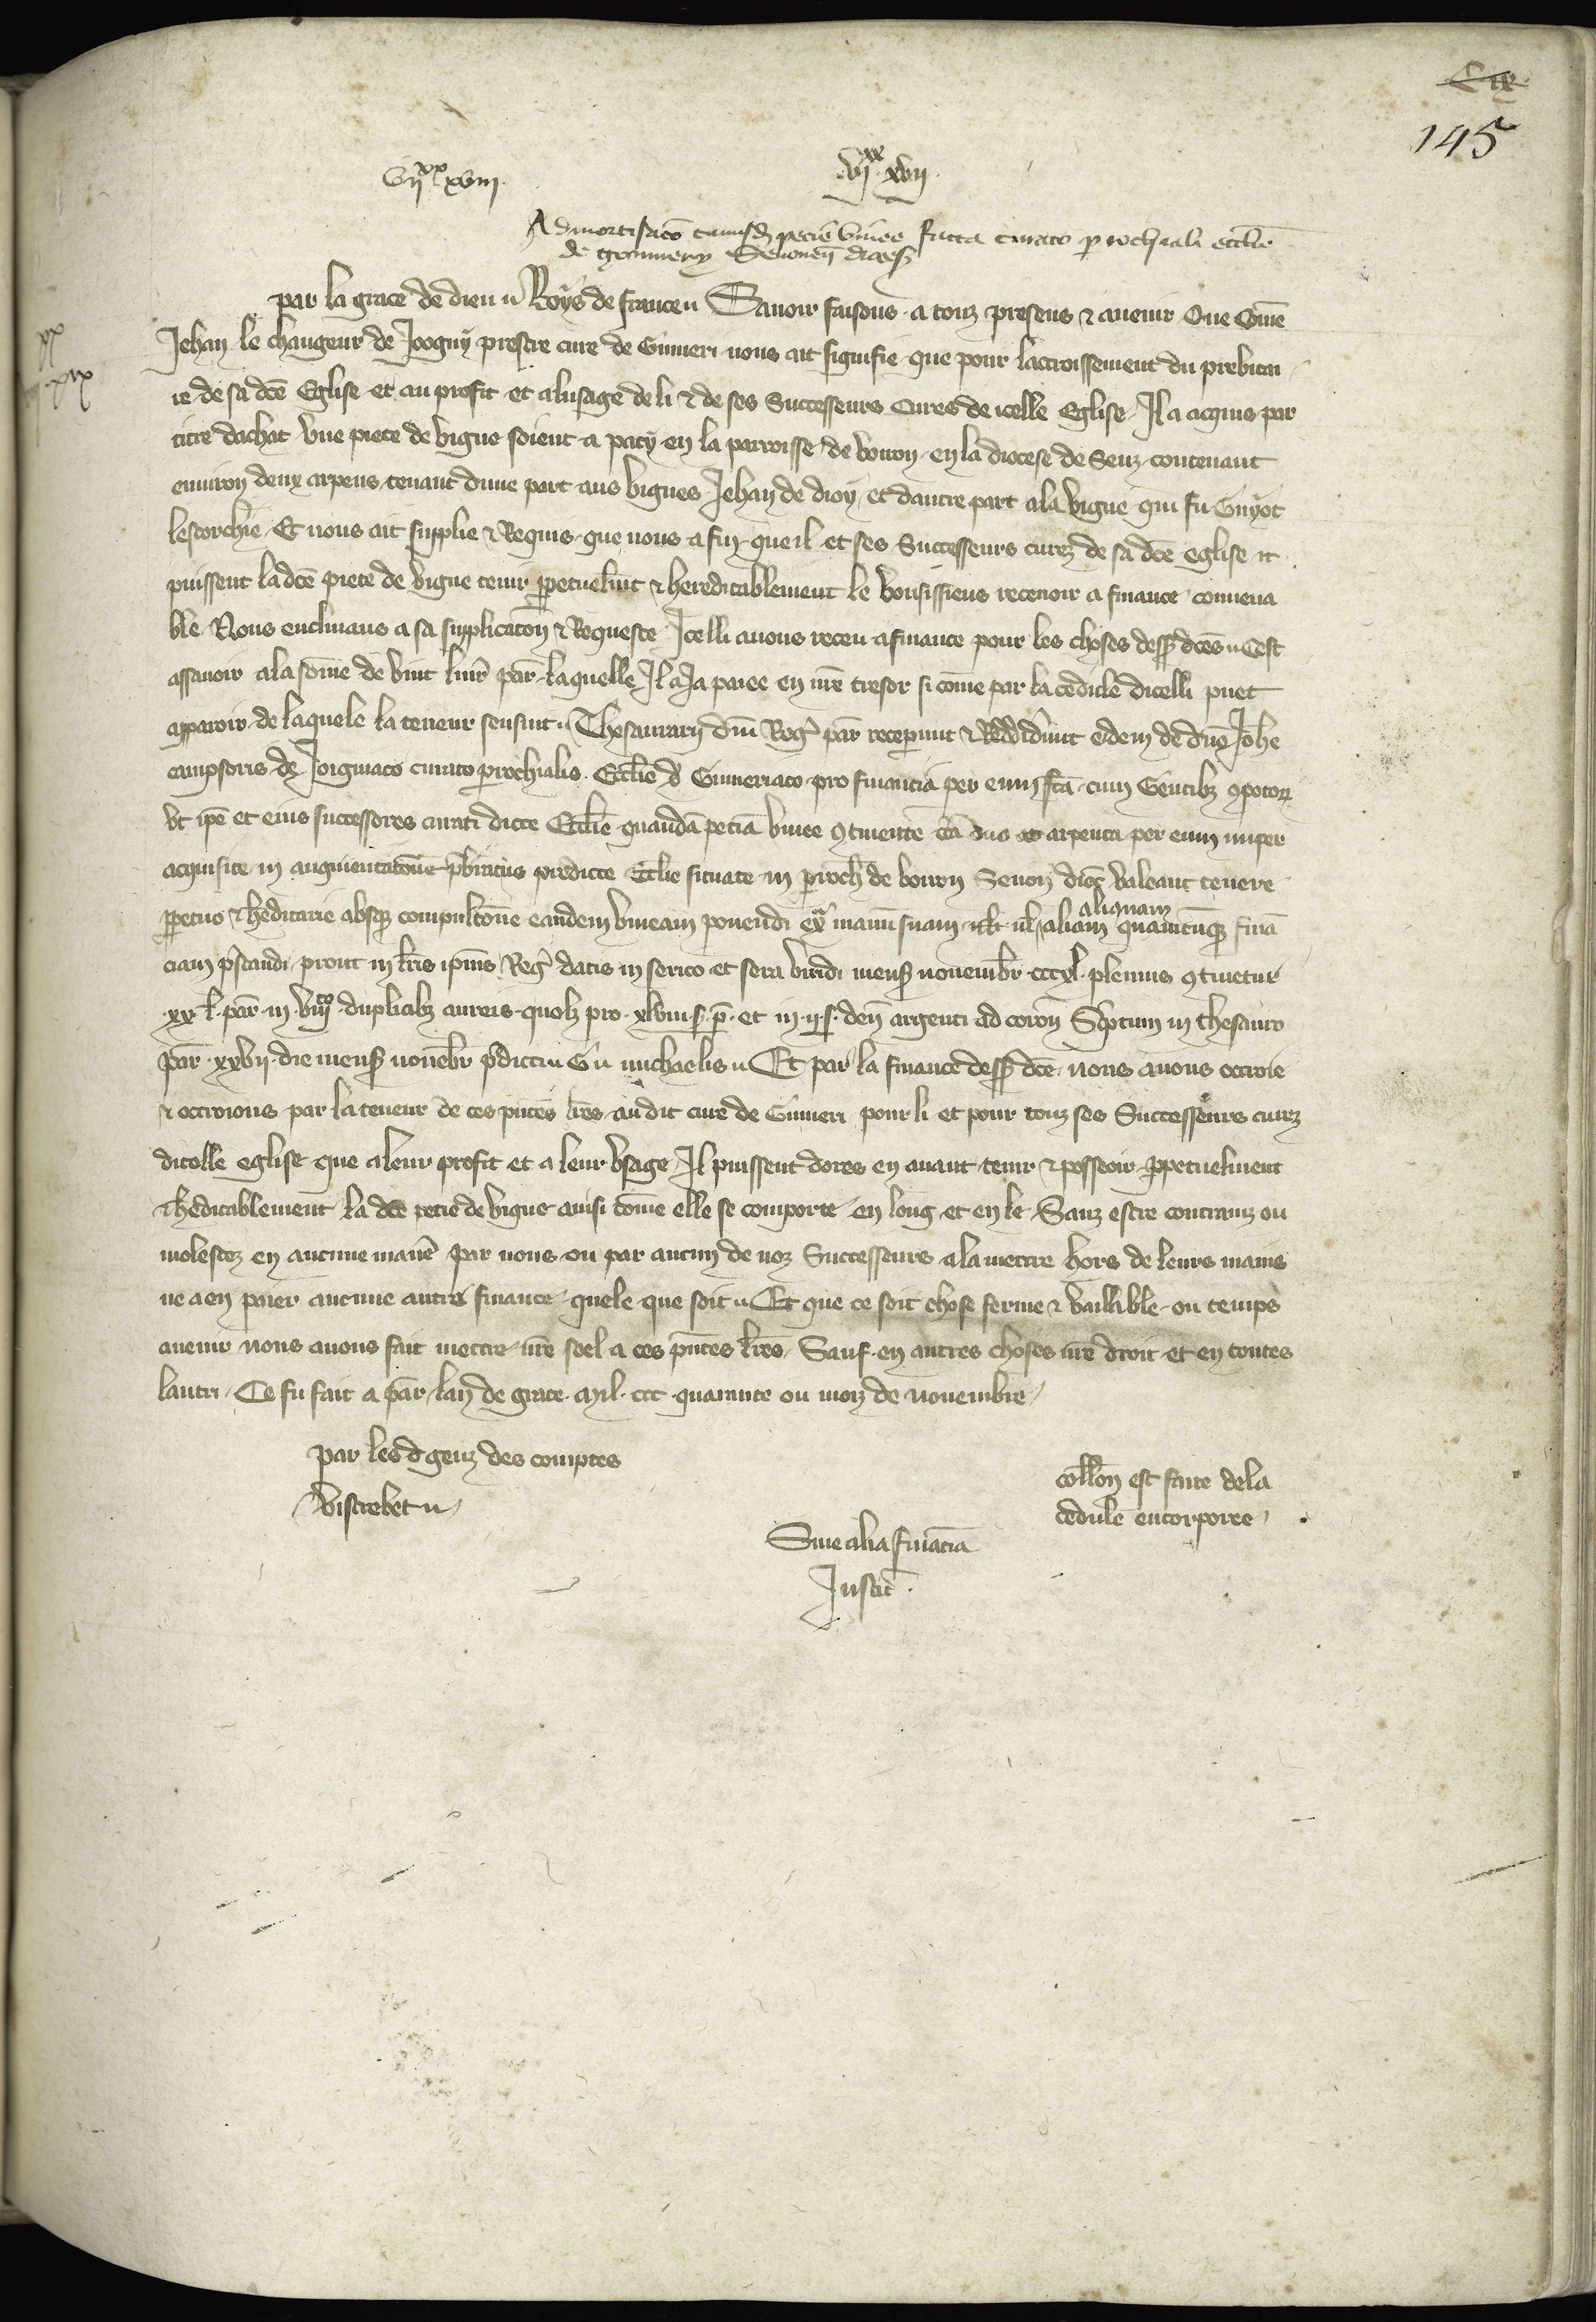 145
vii xx xviii.
vi xx xvii.
Admortisacio cuiusd pecie vinee facta curato parochiali ecclie
de Senonen dioces
par la grace de dieu Roys de france Savoir faisons a touz presens & avenir Que come
Jehan le changeur de Joogny prestre cure de Gimeri nous ait signifie que pour laccroissement du prebitei
re de sa dce Eglise et au profit et a lusage de li & de ses Successeurs Cures de icelle Eglise Il a acquis par
titre dachat une piece de vigne seient a pacy en la parroisse de vouon en la diocese de Senz contenant
environ deux arpens tenant dune part aus vignes Jehan de dioy et dautre part a la vigne qui fu Guyot
lescorchie Et nous ait supplie & Requis que nous a fin que il et ses Successeurs curez de sa dce eglise et
puissent ladce piece de vigne tenir ppetuelmt & hereditablement le vousissiens recevoir a finance convena
ble Nous enclinans a sa supplicaton & Requeste Icelli avons receu a finance pour les choses dess dces Cest
assavoir a la some de vint livr par laquelle Il a Ja paiee en nre tresor si come par la cedule dicelli puet
apparoir de laquele la teneur sensuit Thesaurarij dni Reg par receperunt & Reddiderunt eidem de dno Johe
campsoris de Joigniaco curato parochialis Ecclie de Gimeriaco pro financia per eum fca cum Gentibz compotor
ut ipe et eius successores curati dicte Ecclie quandam peciam vinee continente circa duo arpenta per eum nuper
acquisite in augmentatione presbiterius predicte Eclie situate in paroch de vouon Senon dioc valeant tenere
ppetuo & heditarie absque compulsione eandem vineam ponendi extra manum suam vl aliam aliquam quamcunque finan
ciam prestandi prout in lris ipius Reg datis in serico et cera viridi mens novembr cccxl plenius continetur
xx l par in viii duplicibz aureis quolz pro xlviii s p et in ii s den argenti ad coron Scriptum in thesauro
par xxvii die mens novebr predicti Michaelis Et par la finance dess dce nous avons ottroie
& ottroions par la teneur de ces pntes lres audit cure de Gimeri pour li et pour touz ses Successeurs curez
dicelle eglise que a leur profit et a leur usage Il puissent dores en avant tenir & posseoir ppetuelment
& heditablement la dce piece de vigne ainsi come elle se comporte en long et en le Sanz estre contrainz ou
molestez en aucune maniere par nous ou par aucun de noz Successeurs a la mettre hors de leurs mains
ne a en paier aucune autre finance quele que soit Et que ce soit chose ferme & vaillable ou temps
avenir nous avons fait mettre nre seel a ces pntes lres Sauf en autres choses nre droit et en toutes
lautri Ce fu fait a par lan de grace mil ccc quarante ou mois de novembre
par les genz des comptes
Vistrebet
collon est faite de la
cedule encorporee
Sine alia financia
Justic